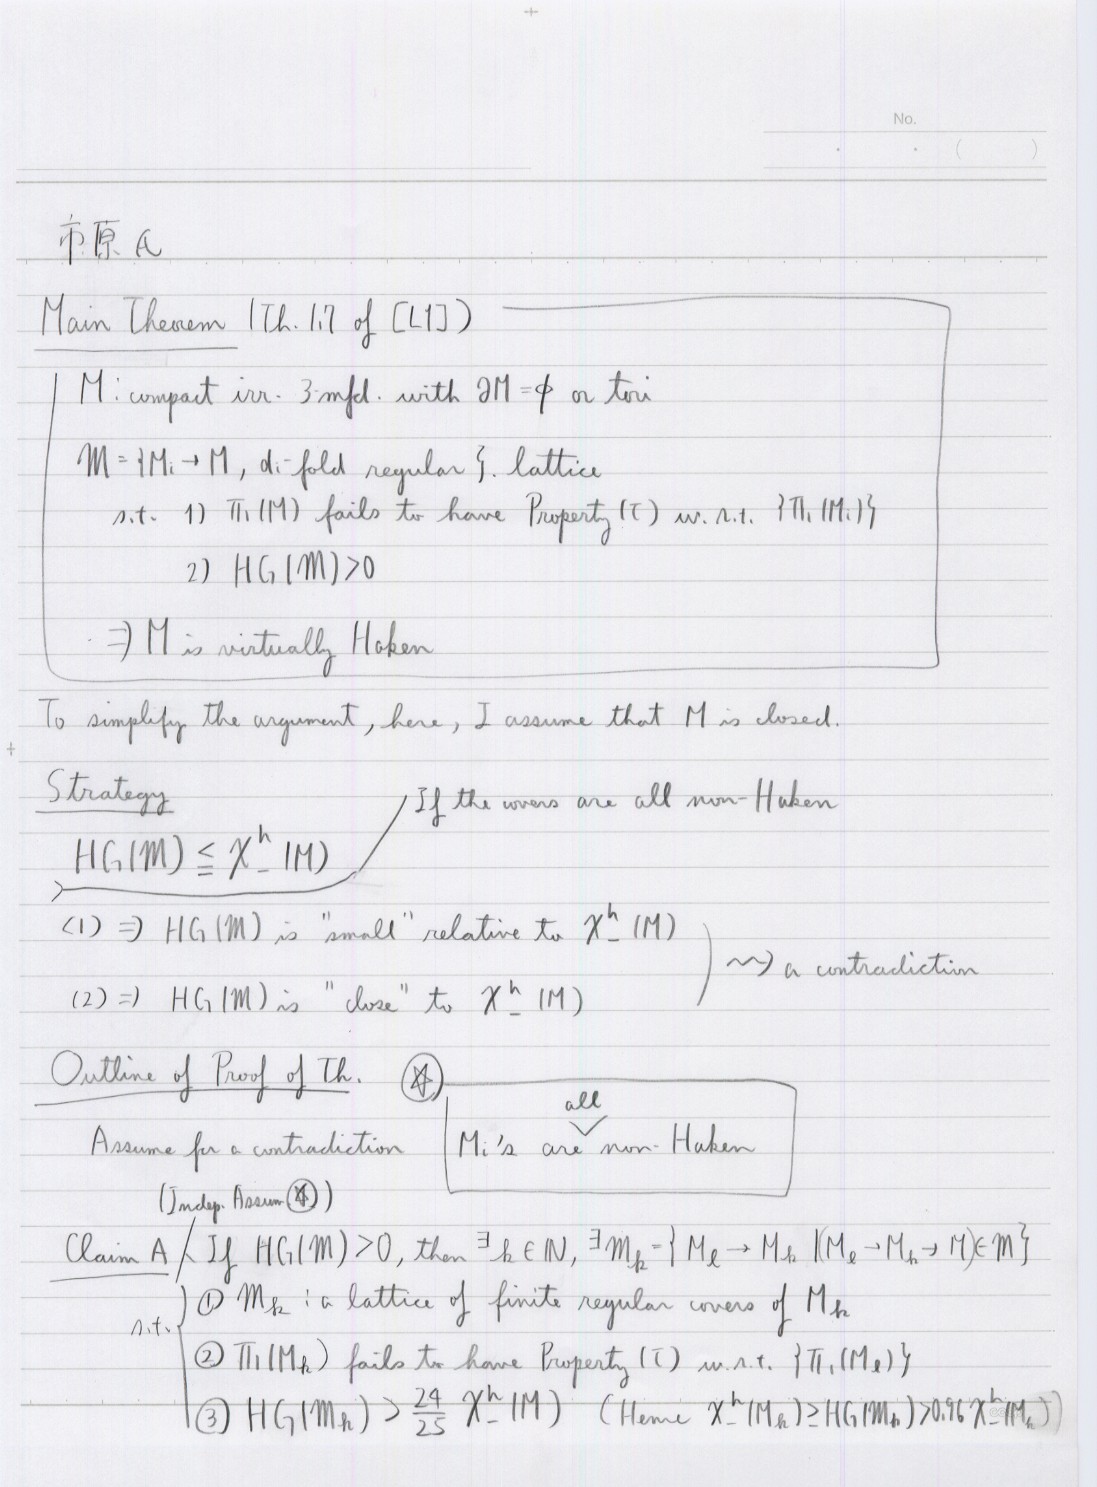 No.
市原氏
Main Theorem (Th. 1.7 of [L1])
M : compact irr. 3-mfd. with ∂M = φ or tori
𝓜 = {Mi → M, di-fold regular}. lattice
s.t. 1) π1(M) fails to have Property (τ) w.r.t. {π1(Mi)}
2) HG(𝓜) > 0
⇒ M is virtually Haken
To simplify the argument, here, I assume that M is closed.
Strategy
If the covers are all non-Haken
HG(𝓜) ≦ χ_-^h (M)
(1) ⇒ HG(𝓜) is "small" relative to χ_-^h (M)
⇝ a contradiction
(2) ⇒ HG(𝓜) is "close" to χ_-^h (M)
Outline of Proof of Th. ☆
all
Assume for a contradiction Mi's are non-Haken
(Indep. Assum ☆)
Claim A If HG(𝓜) > 0, then ∃k ∈ ℕ, ∃𝓜k = {Mℓ → Mk | (Mℓ → Mk → M) ∈ 𝓜}
s.t. ① 𝓜k : a lattice of finite regular covers of Mk
② π1(Mk) fails to have Property (τ) w.r.t. {π1(Mℓ)}
③ HG(𝓜k) > 24/25 χ_-^h (M) (Hence χ_-^h (Mk) ≥ HG(𝓜k) > 0.96 χ_-^h (Mk))